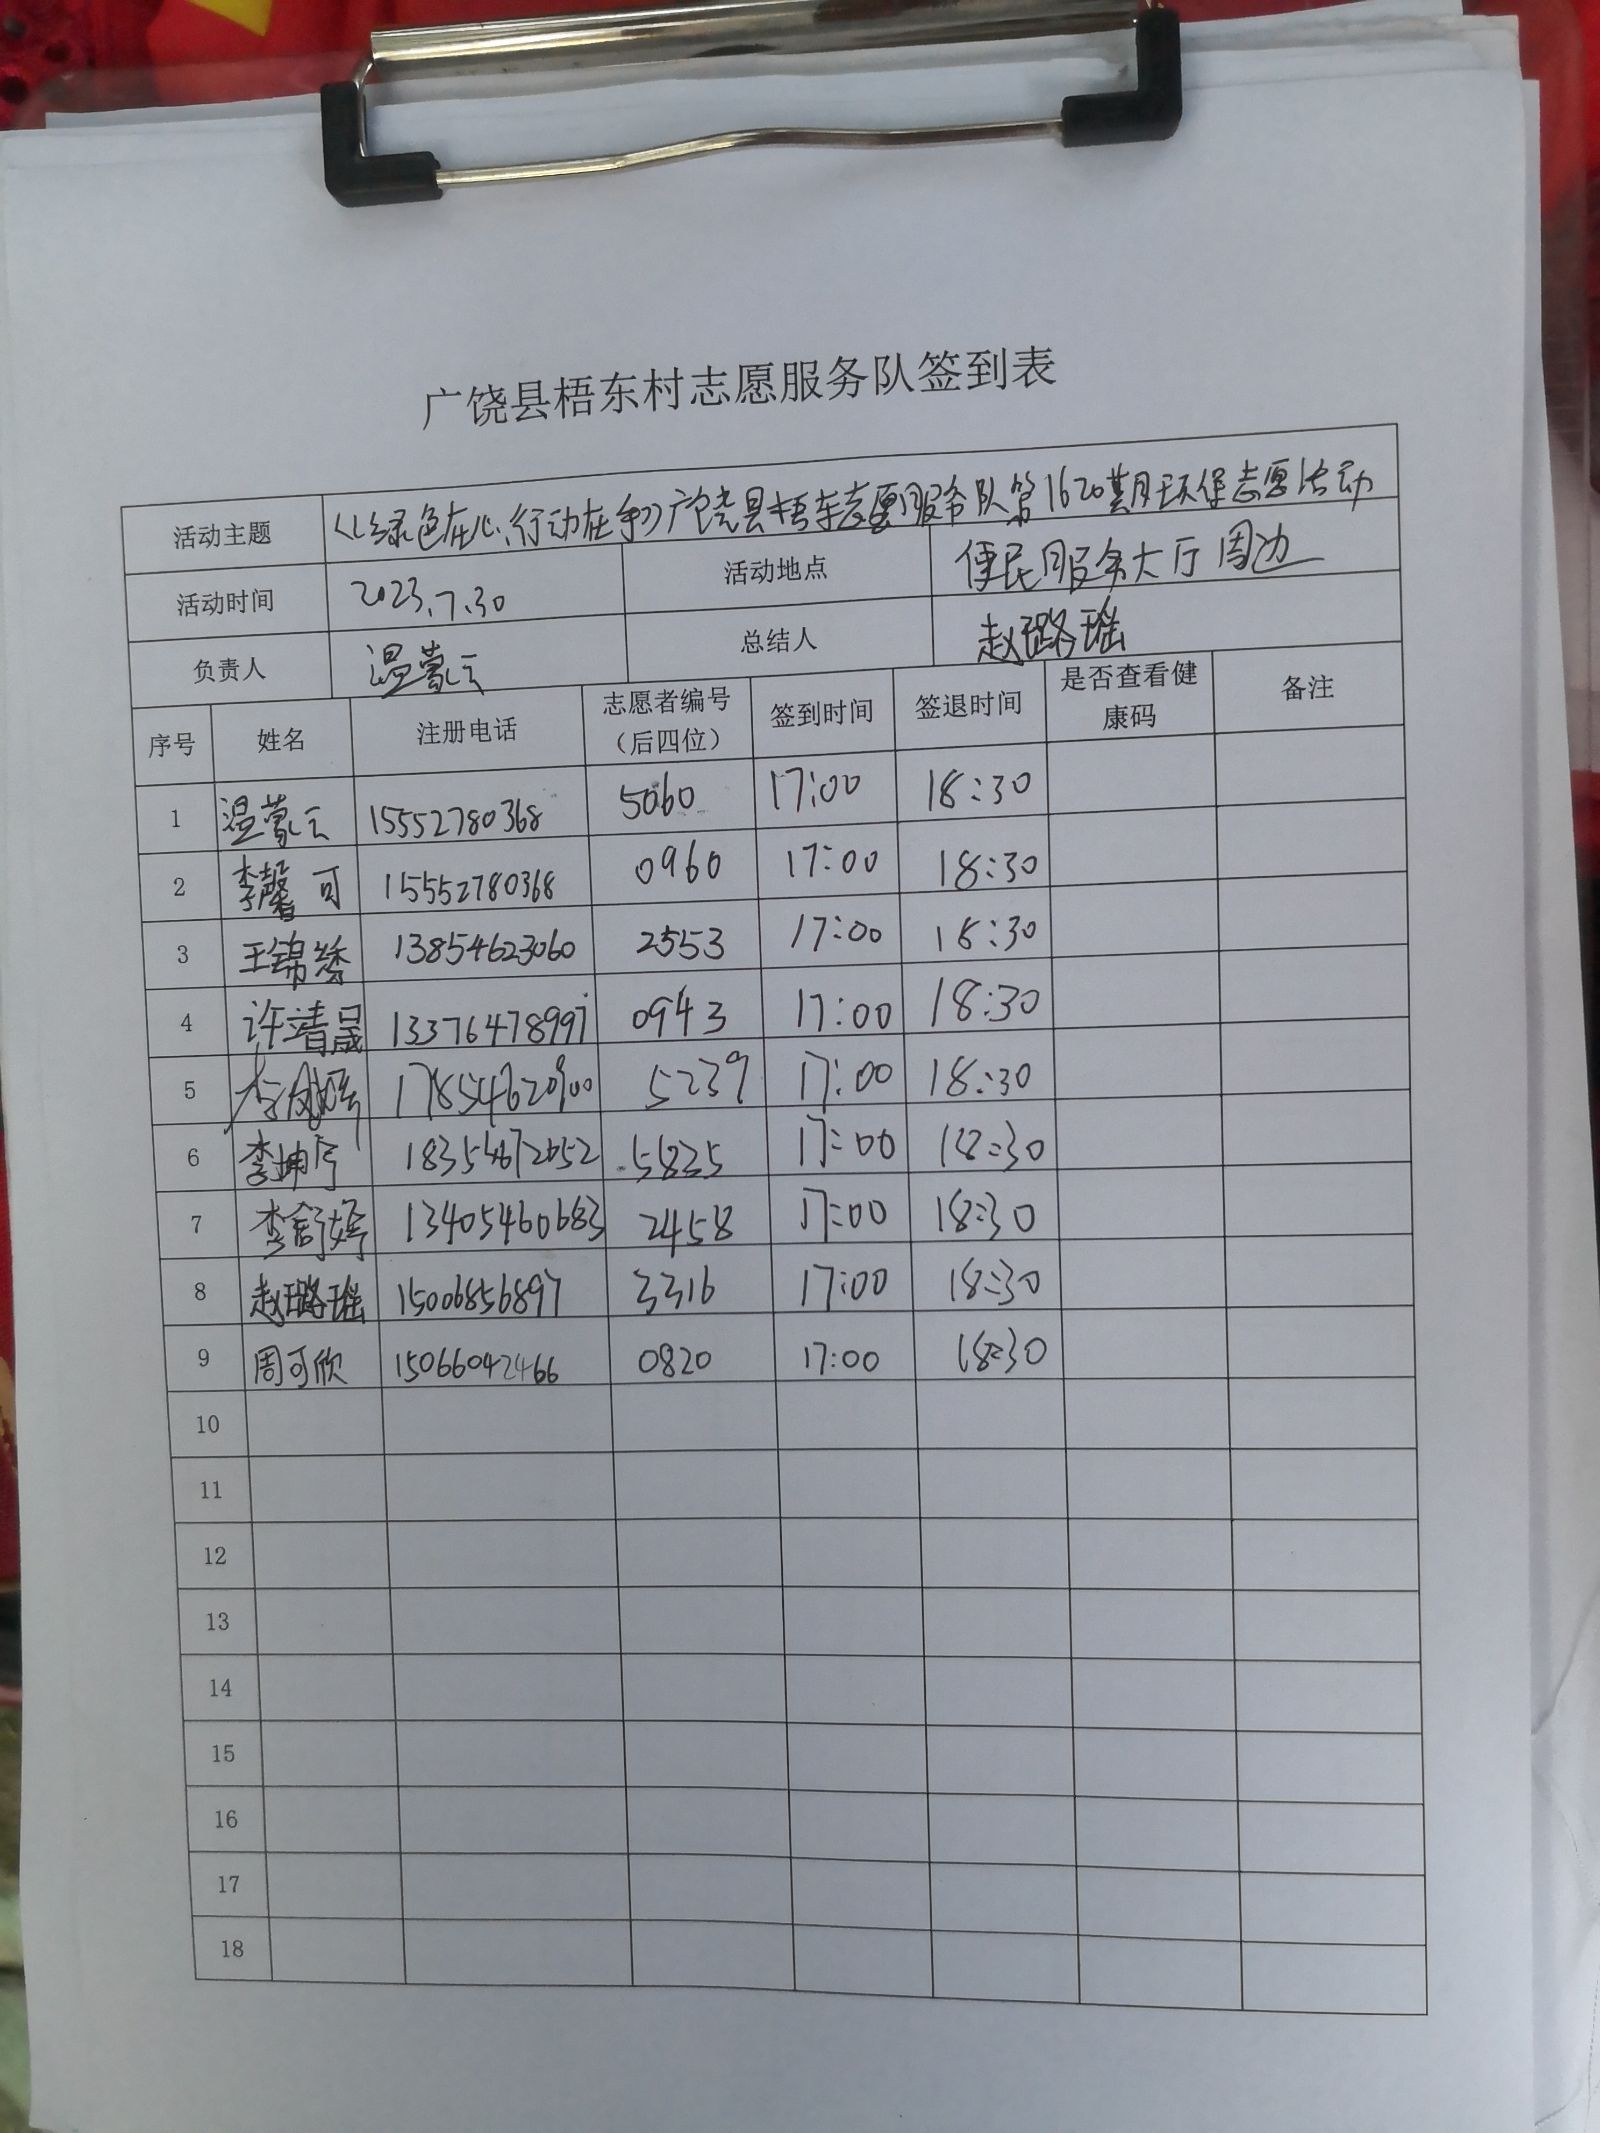 广饶县梧东村志愿服务队签到表
活动主题 《绿色在心,行动在手》广饶县梧东志愿服务队第1620期环保志愿活动
活动时间 2023.7.30 活动地点 便民服务大厅周边
负责人 温蒙云 总结人 赵璐瑶
序号 姓名 注册电话 志愿者编号（后四位） 签到时间 签退时间 是否查看健康码 备注
1 温蒙云 15552780368 5060 17:00 18:30
2 李馨可 15552780368 0960 17:00 18:30
3 王锦绣 13854623060 2553 17:00 18:30
4 许靖晟 13376478997 0943 17:00 18:30
5 17854620900 5239 17:00 18:30
6 李坤 18354672052 5835 17:00 18:30
7 李舒婷 13405460683 2458 17:00 18:30
8 赵璐瑶 15006856897 3316 17:00 18:30
9 周可欣 15066042466 0820 17:00 18:30
10
11
12
13
14
15
16
17
18